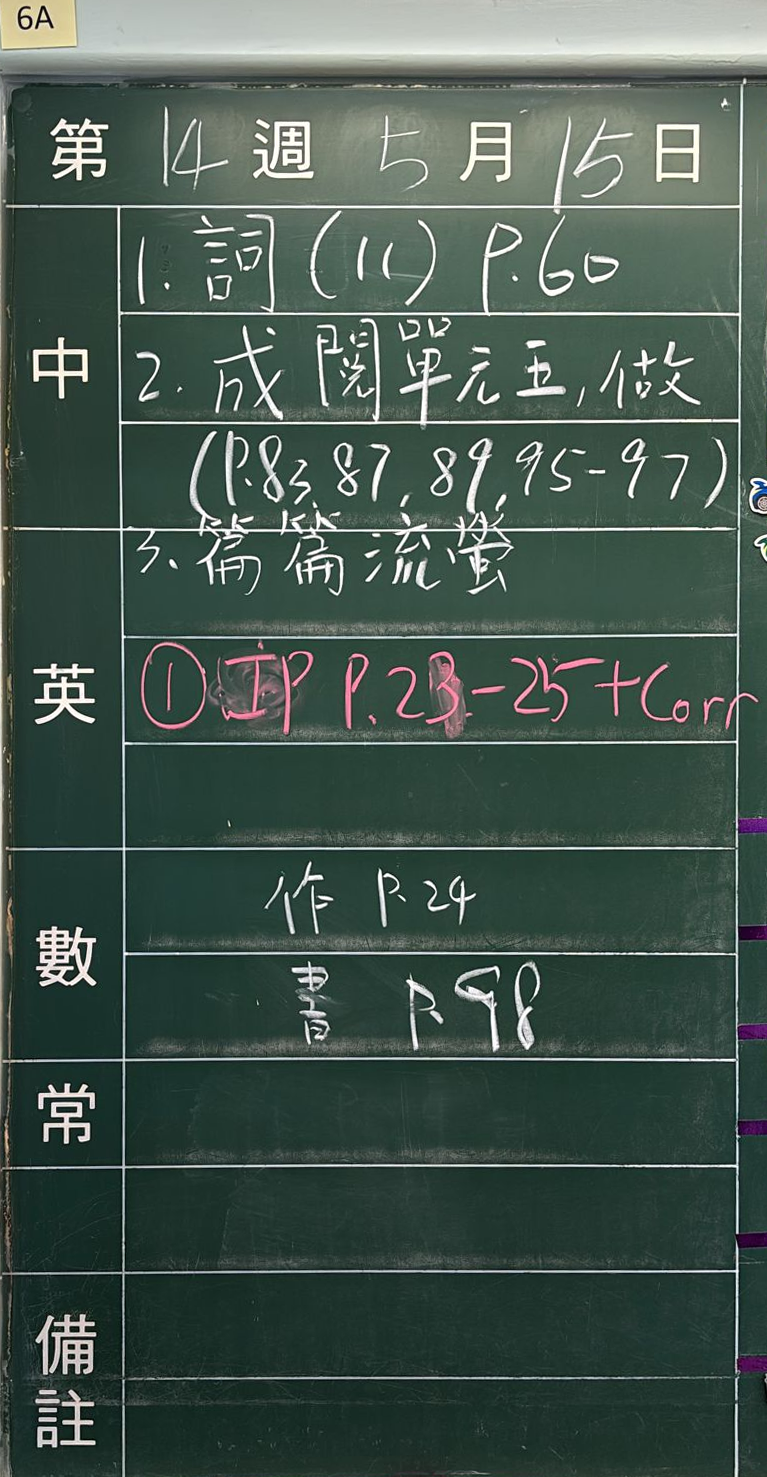 6A
第 14 週 5 月 15 日
中
1. 詞 (11) P.60
2. 成 閱單元五, 做
(P.83, 87, 89, 95-97)
3. 篇篇流螢
英
① IP P.23-25 + Corr
數
作 P.24
書 P.98
常
備註